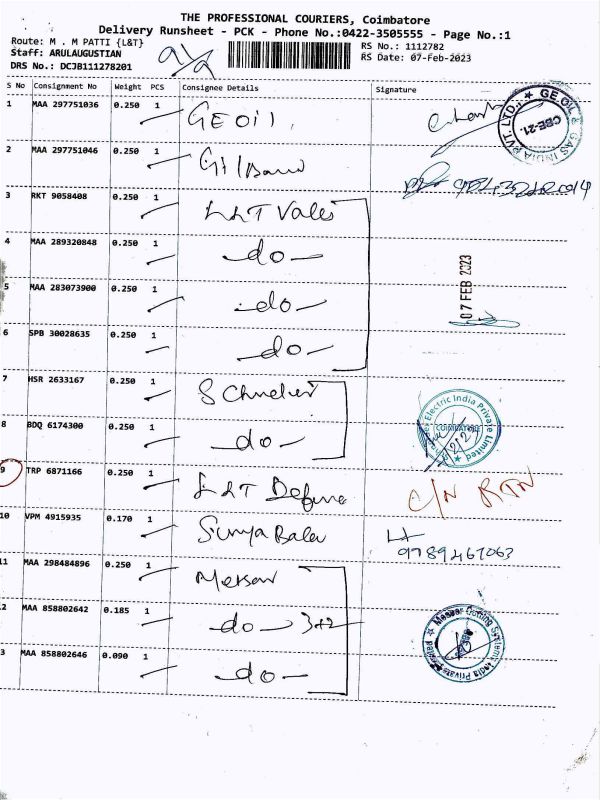 THE PROFESSIONAL COURIERS, Coimbatore
Delivery Runsheet - PCK - Phone No.:0422-3505555 - Page No.:1
Route: M . M PATTI {L&T} RS No.: 1112782
Staff: ARULAUGUSTIAN RS Date: 07-Feb-2023
DRS No.: DCJB111278201
S No Consignment No Weight PCS Consignee Details Signature
1 MAA 297751036 0.250 1 GE Oil. GE OIL & GAS INDIA PVT. LTD. CBE-21.
2 MAA 297751046 0.250 1
3 RKT 9058408 0.250 1 L&T Valves
4 MAA 289320848 0.250 1 -do- 07 FEB 2023
5 MAA 283073900 0.250 1 -do-
6 SPB 30028635 0.250 1 -do-
7 HSR 2633167 0.250 1 Electric India Private Limited
8 BDQ 6174300 0.250 1 -do-
9 TRP 6871166 0.250 1 L&T Defence C/N RTN
10 VPM 4915935 0.170 1 Surya Balev 9789467063
11 MAA 298484896 0.250 1 Messer
2 MAA 858802642 0.185 1 -do- 3+2 Messer Cutting Systems India Private
3 MAA 858802646 0.090 1 -do-